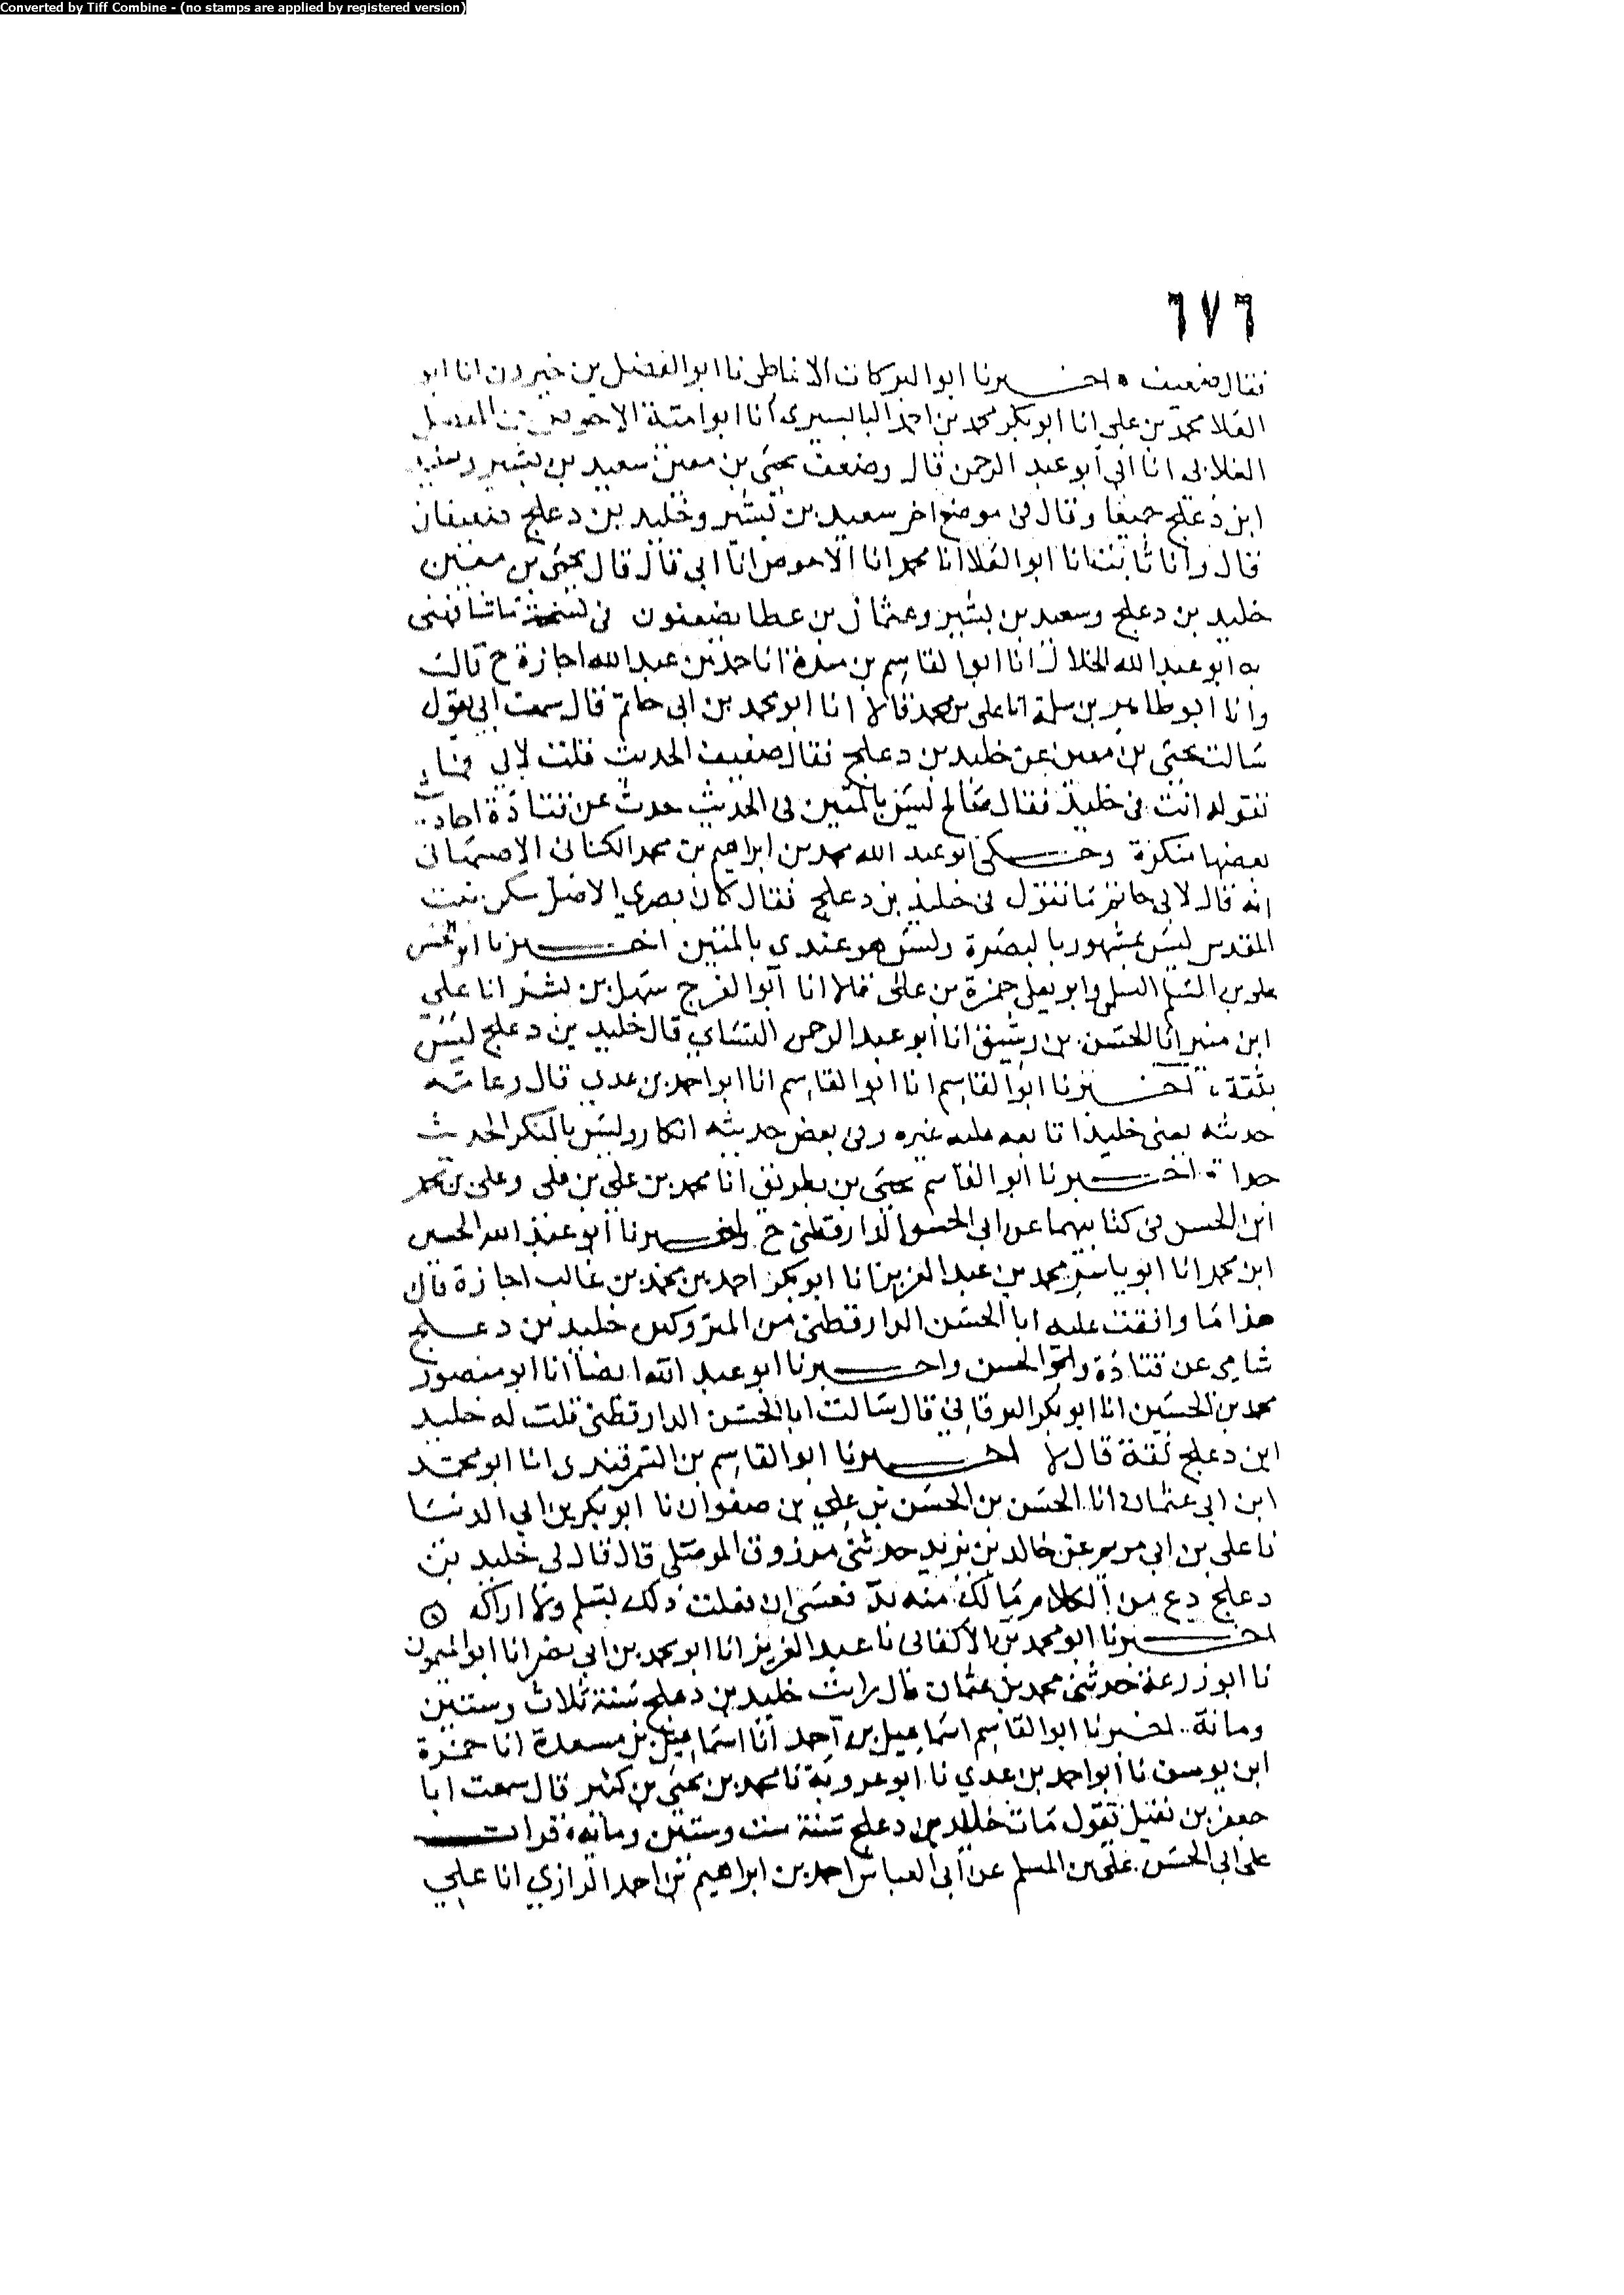 Converted by Tiff Combine - (no stamps are applied by registered version)
٦٧٦
فقال ضعيف ه اخبرنا ابوالبركات الانماطي نا ابوالفضل بن خيرون انا ابو
العلا محمد بن علي انا ابوبكر محمد بن احمد البابسيري انا ابوامية الاحوص بن المفضل
الغلابي انا ابي ابوعبد الرحمن قال وضعف يحيى بن معين سعيد بن بشير وخليد
ابن دعلج جميعا وقال في موضع اخر سعيد بن بشير وخليد بن دعلج ضعيفان
قال وانا ثابت انا ابوالعلا انا محمد انا الاحوص انا ابي قال قال يحيى بن معين
خليد بن دعلج وسعيد بن بشير وعثمان بن عطا يضعفون في نسخة ما شافهني
به ابو عبد الله الخلال انا ابوالقاسم بن مندة انا حمد بن عبد الله اجازة ح قالت
وانا ابوطاهر بن سلمة انا علي بن محمد قالا انا ابو محمد بن ابي حاتم قال سمعت ابي يقول
سالت يحيى بن معين عن خليد بن دعلج فقال ضعيف الحديث قلت لابي فما
تقوله انت في خليد فقال صالح ليس بالمتين في الحديث حدث عن قتادة احاديث
بعضها منكرة وحكى ابوعبد الله محمد بن ابراهيم بن محمد الكناني الاصبهاني
انه قال لابي حاتم ما تقول في خليد بن دعلج فقال كان بصري الاصل سكن بيت
المقدس ليس بمشهور بالبصرة وليس هو عندي بالمتين اخبرنا ابوالحسن
علي بن المسلم السلمي وابو يعلى حمزة بن علي قالا انا ابوالفرج سهل بن بشر انا علي
ابن منير انا الحسن بن رشيق انا ابوعبد الرحمن النسائي قال خليد بن دعلج ليس
بثقة، اخبرنا ابوالقاسم انا ابوالقاسم انا ابواحمد بن عدي قال وعامة
حديثه يعني خليدا تابعه عليه غيره وفي بعض حديثه انكار وليس بالمنكر الحديث
جدا اخبرنا ابوالقاسم يحيى بن بطريق انا محمد بن علي بن علي وعلي بن محمد
ابن الحسن في كتابيهما عن ابي الحسن الدارقطني ح واخبرنا ابوعبد الله الحسين
ابن محمد انا ابوياسر محمد بن عبد العزيز انا ابوبكر احمد بن محمد بن غالب اجازة قال
هذا ما وافقت عليه ابا الحسن الدارقطني من المتروكين خليد بن دعلج
شامي عن قتادة والحسن واخبرنا ابوعبد الله ايضا انا ابومنصور
محمد بن الحسين انا ابوبكر البرقاني قال سالت ابا الحسن الدارقطني قلت له خليد
ابن دعلج ثقة قال لا اخبرنا ابوالقاسم بن السمرقندي انا ابومحمد
ابن ابي عثمان انا الحسن بن الحسن بن علي بن صفوان نا ابوبكر بن ابي الدنيا
نا علي بن ابي مريم عن خالد بن يزيد حدثني مرزوق الموصلي قال قال لي خليد بن
دعلج دع من الكلام ما لك منه بد فعسى ان فعلت ذلك تسلم وما اراك
اخبرنا ابومحمد بن الاكفاني نا عبد العزيز انا ابومحمد بن ابي نصر انا ابوالميمون
نا ابوزرعة حدثني محمد بن عثمان قال رايت خليد بن دعلج سنة ثلاث وستين
ومائة اخبرنا ابوالقاسم اسماعيل بن احمد انا اسماعيل بن مسعدة انا حمزة
ابن يوسف نا ابواحمد بن عدي نا ابوعروبة نا محمد بن يحيى بن كثير قال سمعت ابا
جعفر بن نفيل يقول مات خليد بن دعلج سنة ست وستين ومائة قرات
على ابي الحسن علي بن المسلم عن ابي العباس احمد بن ابراهيم بن احمد الرازي انا علي